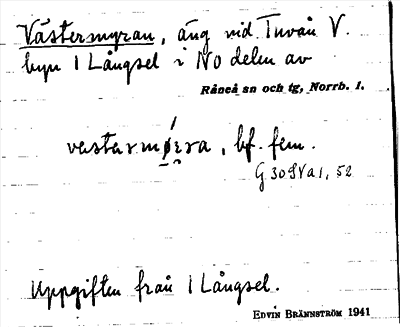 Västermyran, äng vid Tuvån V.
byn 1 Långsel i NO delen av
Råneå sn och tg, Norrb. l.
vestarmǿra, bf. fem.
G 309Va1, 52
Uppgiften från 1 Långsel.
EDVIN BRÄNNSTRÖM 1941